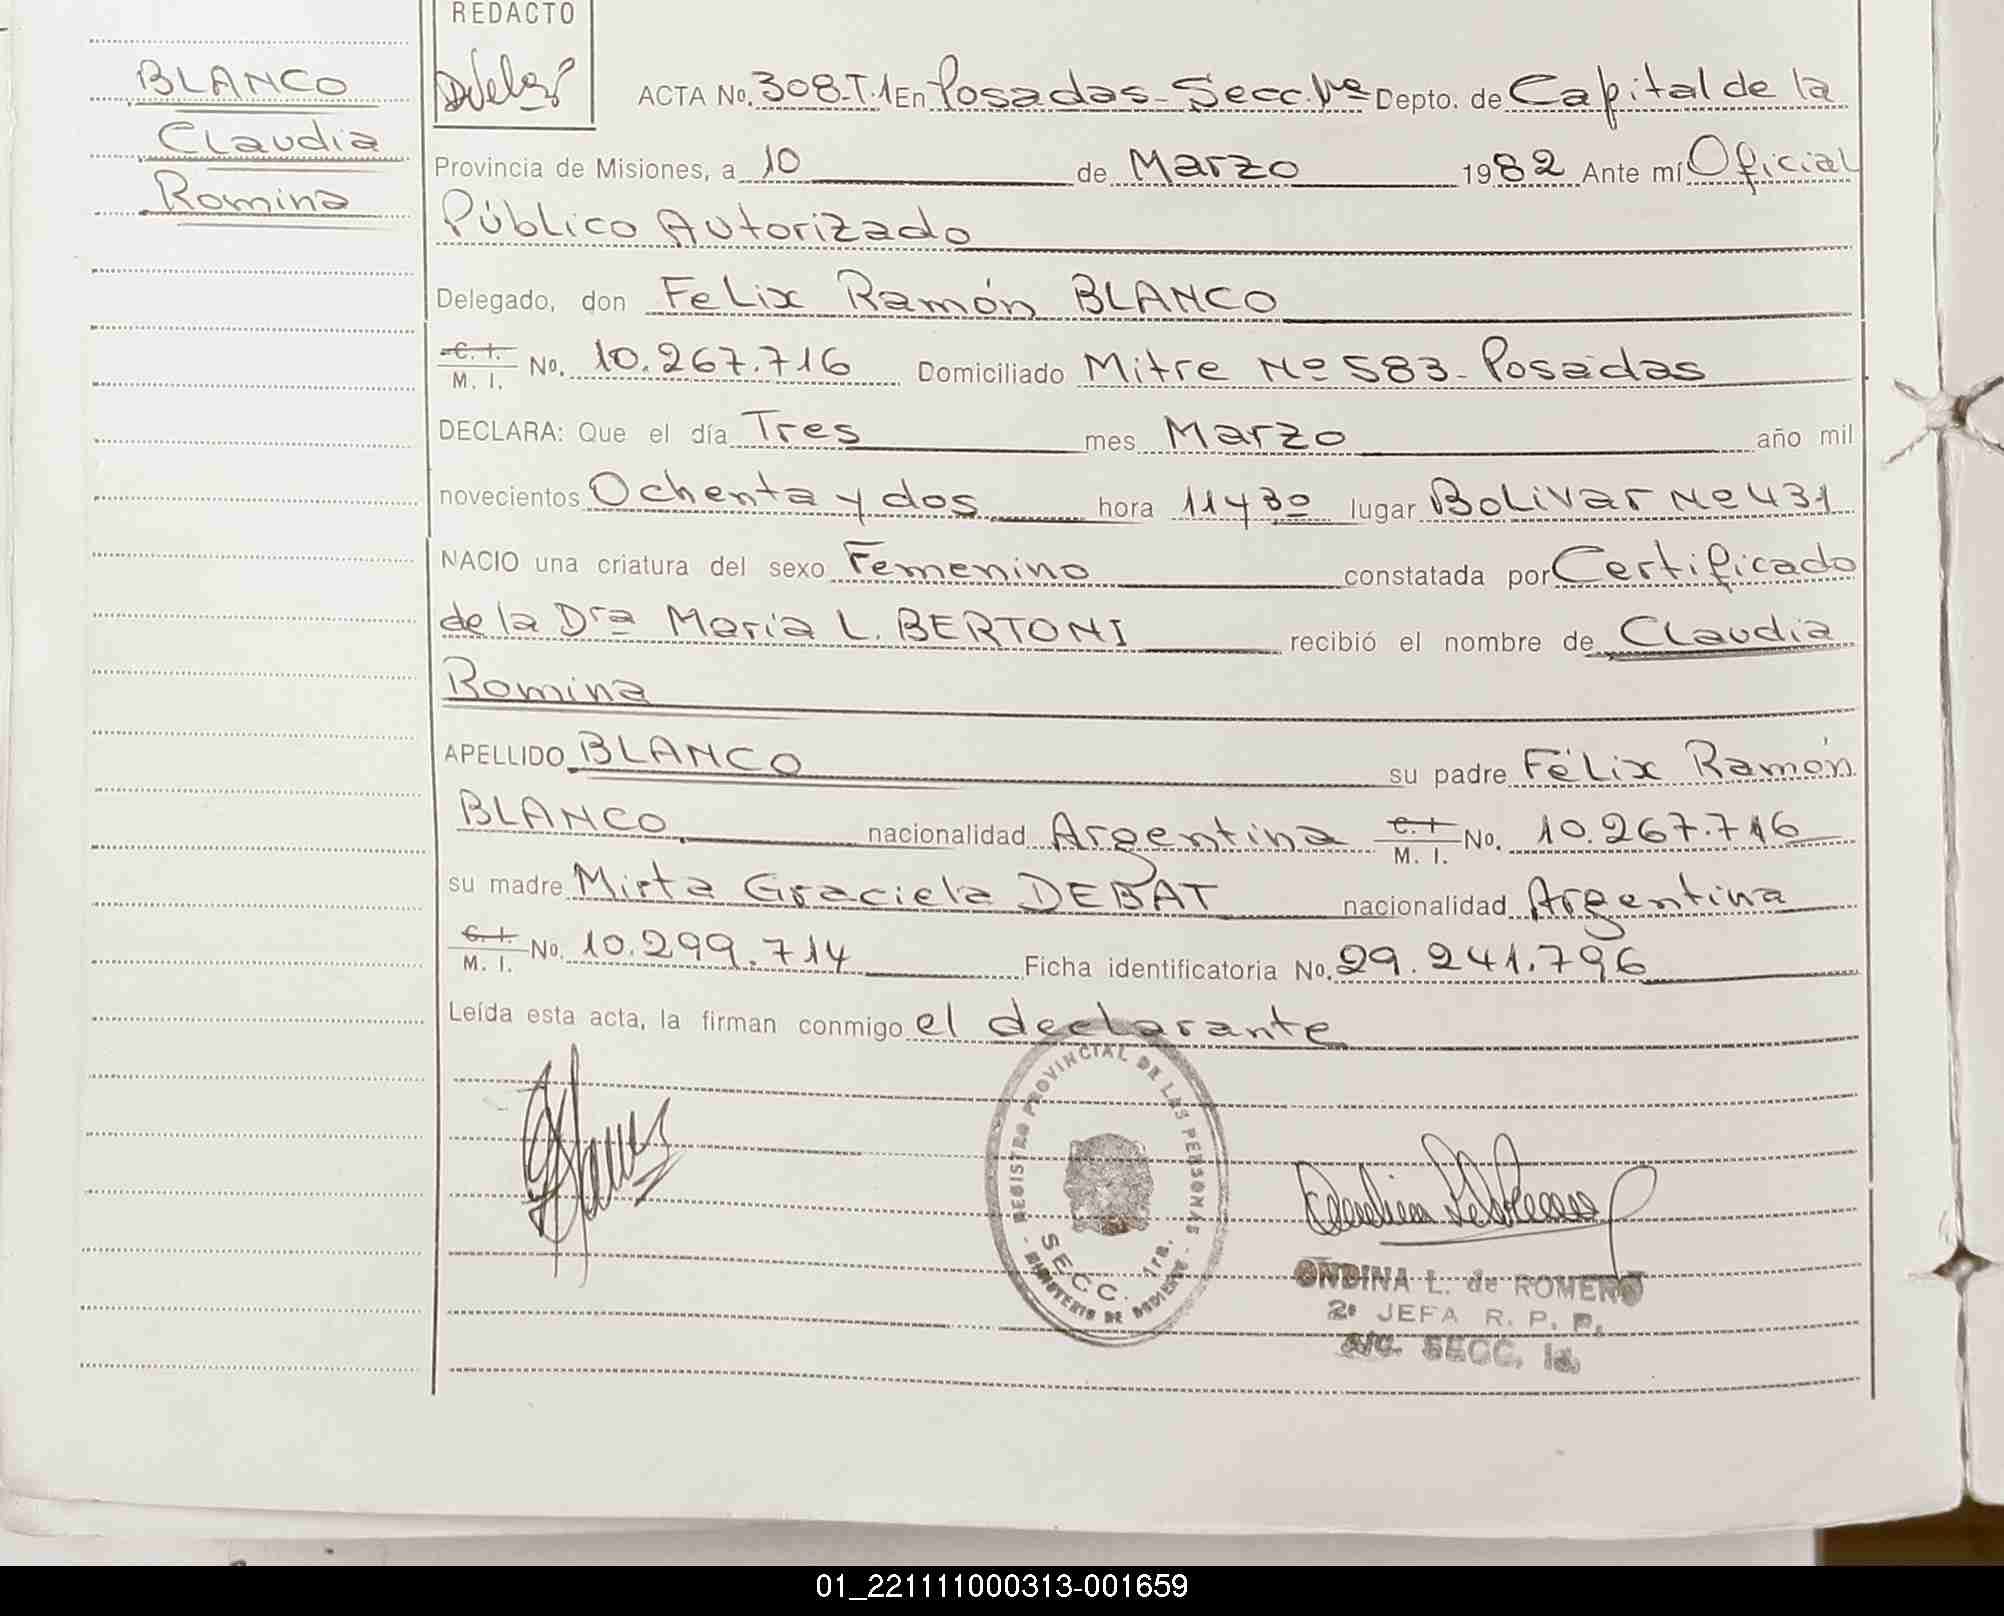 REDACTO
BLANCO
Claudia
Romina
ACTA No. 308-T.1 En Posadas - Secc. 1ª Depto. de Capital de la
Provincia de Misiones, a 10 de Marzo 1982 Ante mí Oficial
Público Autorizado
Delegado, don Felix Ramón BLANCO
C. I. M. I. No. 10.267.716 Domiciliado Mitre Nº 583 - Posadas
DECLARA: Que el día Tres mes Marzo año mil
novecientos Ochenta y dos hora 11 y 30 lugar Bolivar Nº 431
NACIO una criatura del sexo Femenino constatada por Certificado
de la Dra Maria L. BERTONI recibió el nombre de Claudia
Romina
APELLIDO BLANCO su padre Félix Ramón
BLANCO nacionalidad Argentina C. I. M. I. No. 10.267.716
su madre Mirta Graciela DEBAT nacionalidad Argentina
C. I. M. I. No. 10.299.714 Ficha identificatoria No. 29.241.796
Leída esta acta, la firman conmigo el declarante
REGISTRO PROVINCIAL DE LAS PERSONAS
SECC. 1ra.
ONDINA L. de ROMERO
2º JEFA R. P. P.
A/C. SECC. 1a.
01_221111000313-001659